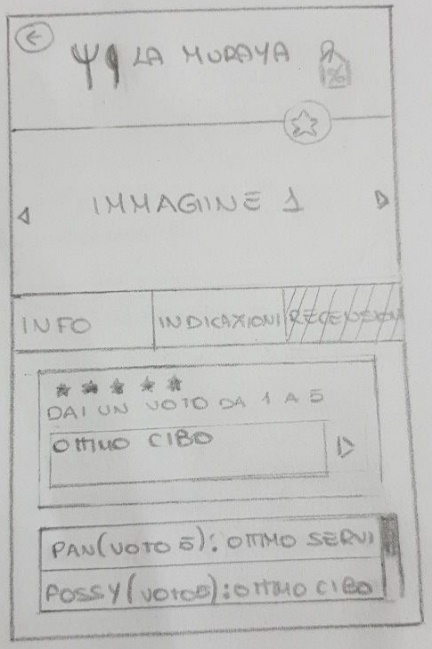 LA MURAYA %
IMMAGIINE 1
INFO INDICAZIONI RECENSIONI
DAI UN VOTO DA 1 A 5
OTTIMO CIBO
PAN(VOTO 5): OTTIMO SERVI
POSSY(VOTO5):OTTIMO CIBO